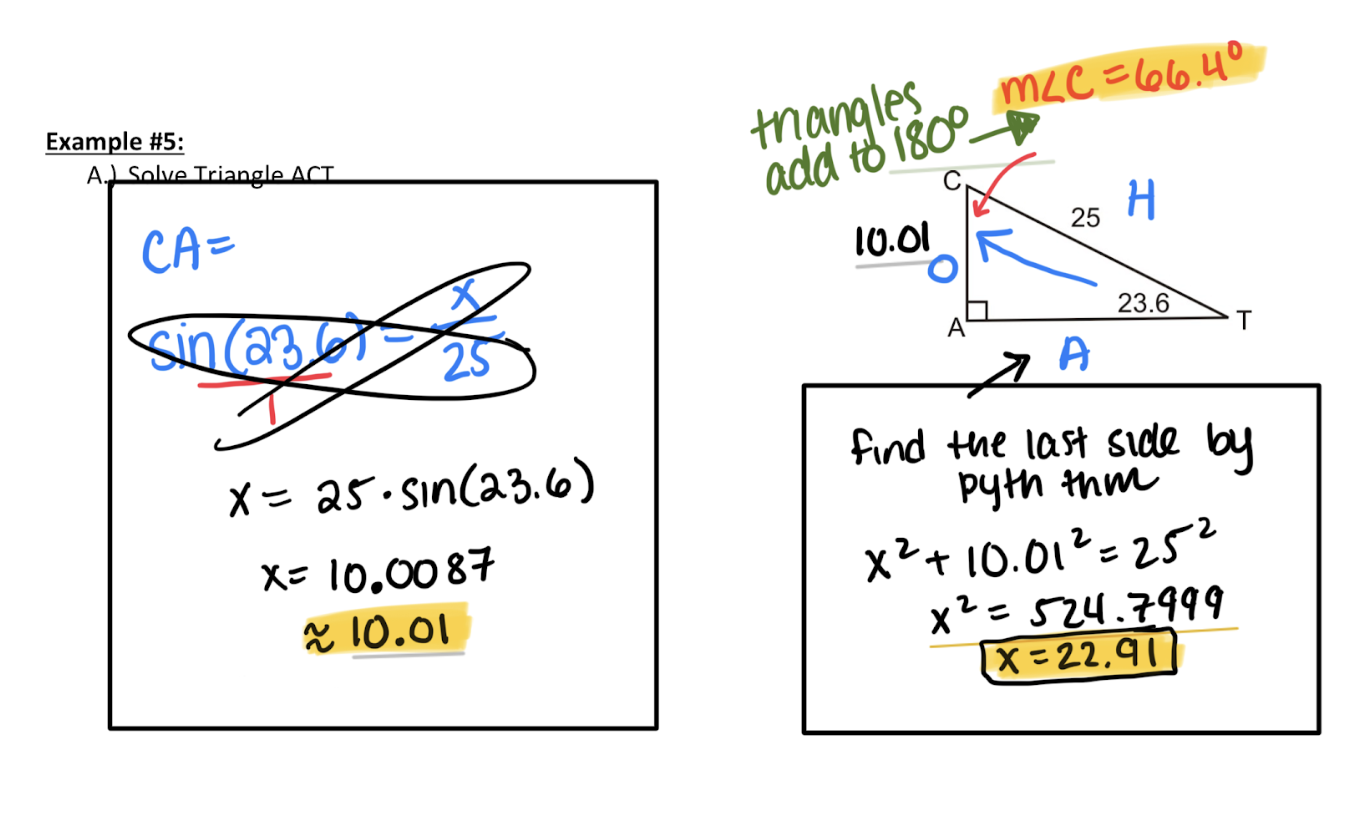 Example #5:
A.) Solve Triangle ACT
CA=
sin(23.6) = x
1 25
x = 25·sin(23.6)
x= 10.0087
≈ 10.01
triangles
add to 180°
m∠C=66.4°
C
25
H
10.01
O
23.6
A
T
A
find the last side by
pyth thm
x²+ 10.01²=25²
x² = 524.7999
x=22.91